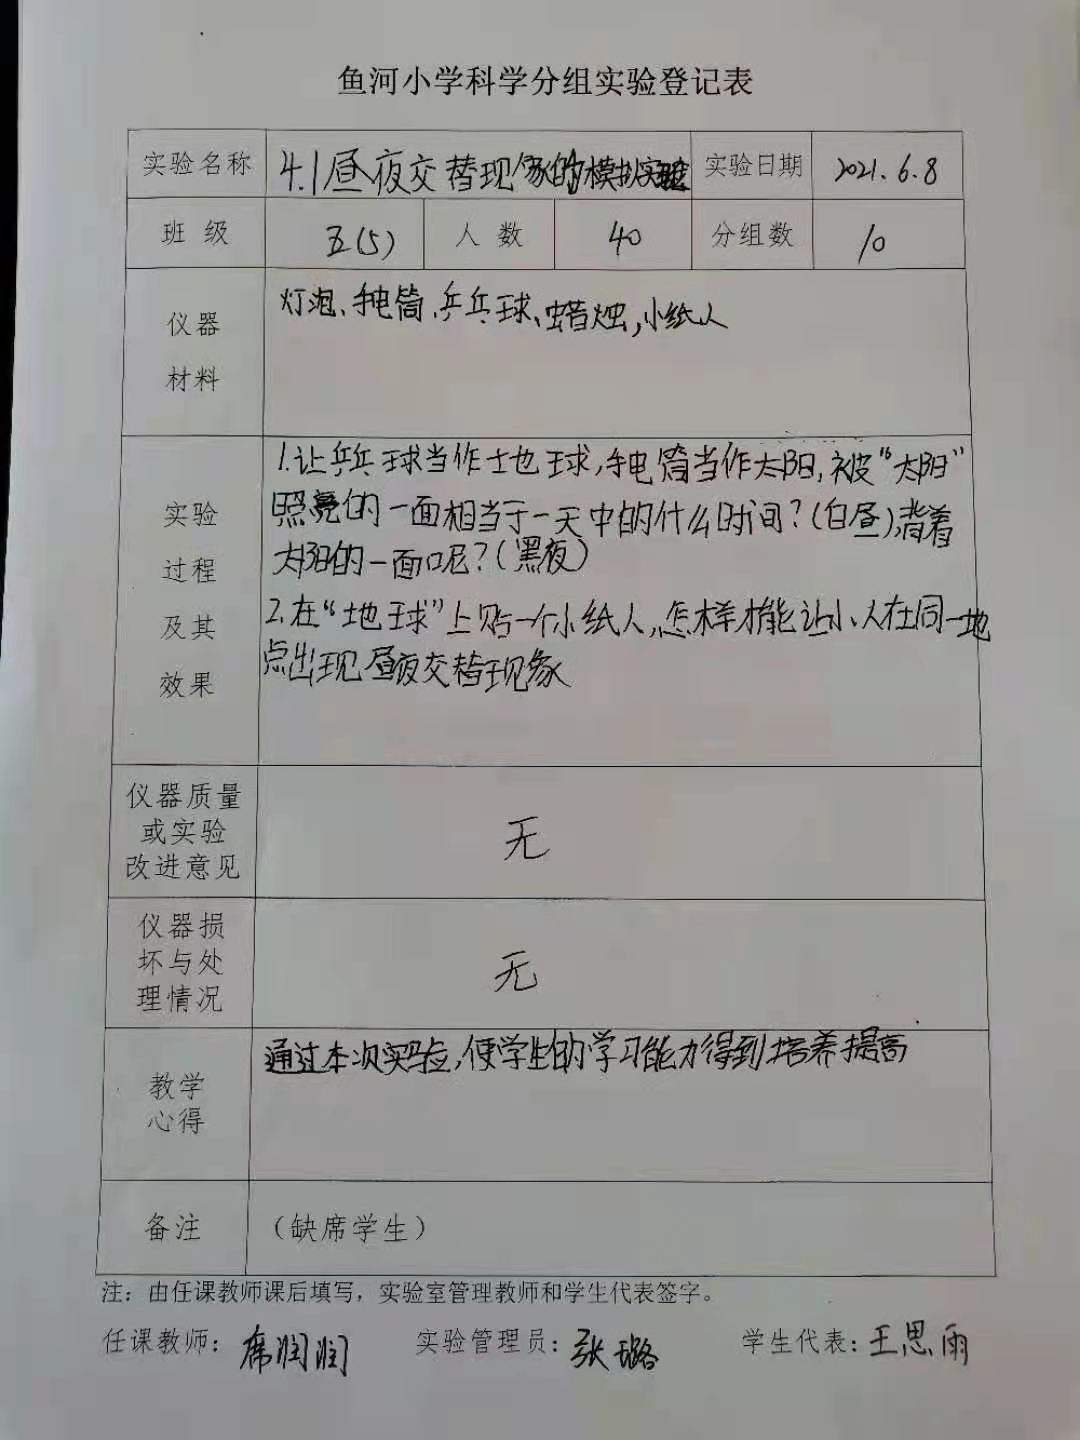 鱼河小学科学分组实验登记表
实验名称 4.1昼夜交替现象的模拟实验 实验日期 2021.6.8
班级 五(5) 人数 40 分组数 10
仪器
材料
灯泡、手电筒、乒乓球、蜡烛,小纸人
实验
过程
及其
效果
1.让乒乓球当作地球,手电筒当作太阳,被“太阳”
照亮的一面相当于一天中的什么时间?(白昼),背着
太阳的一面呢?(黑夜)
2.在“地球”上贴一个小纸人,怎样才能让小人在同一地
点出现昼夜交替现象
仪器质量
或实验
改进意见
无
仪器损
坏与处
理情况
无
教学
心得
通过本次实验,使学生的学习能力得到培养提高
备注 (缺席学生)
注:由任课教师课后填写,实验室管理教师和学生代表签字。
任课教师:席润润 实验管理员:张璐 学生代表:王思雨